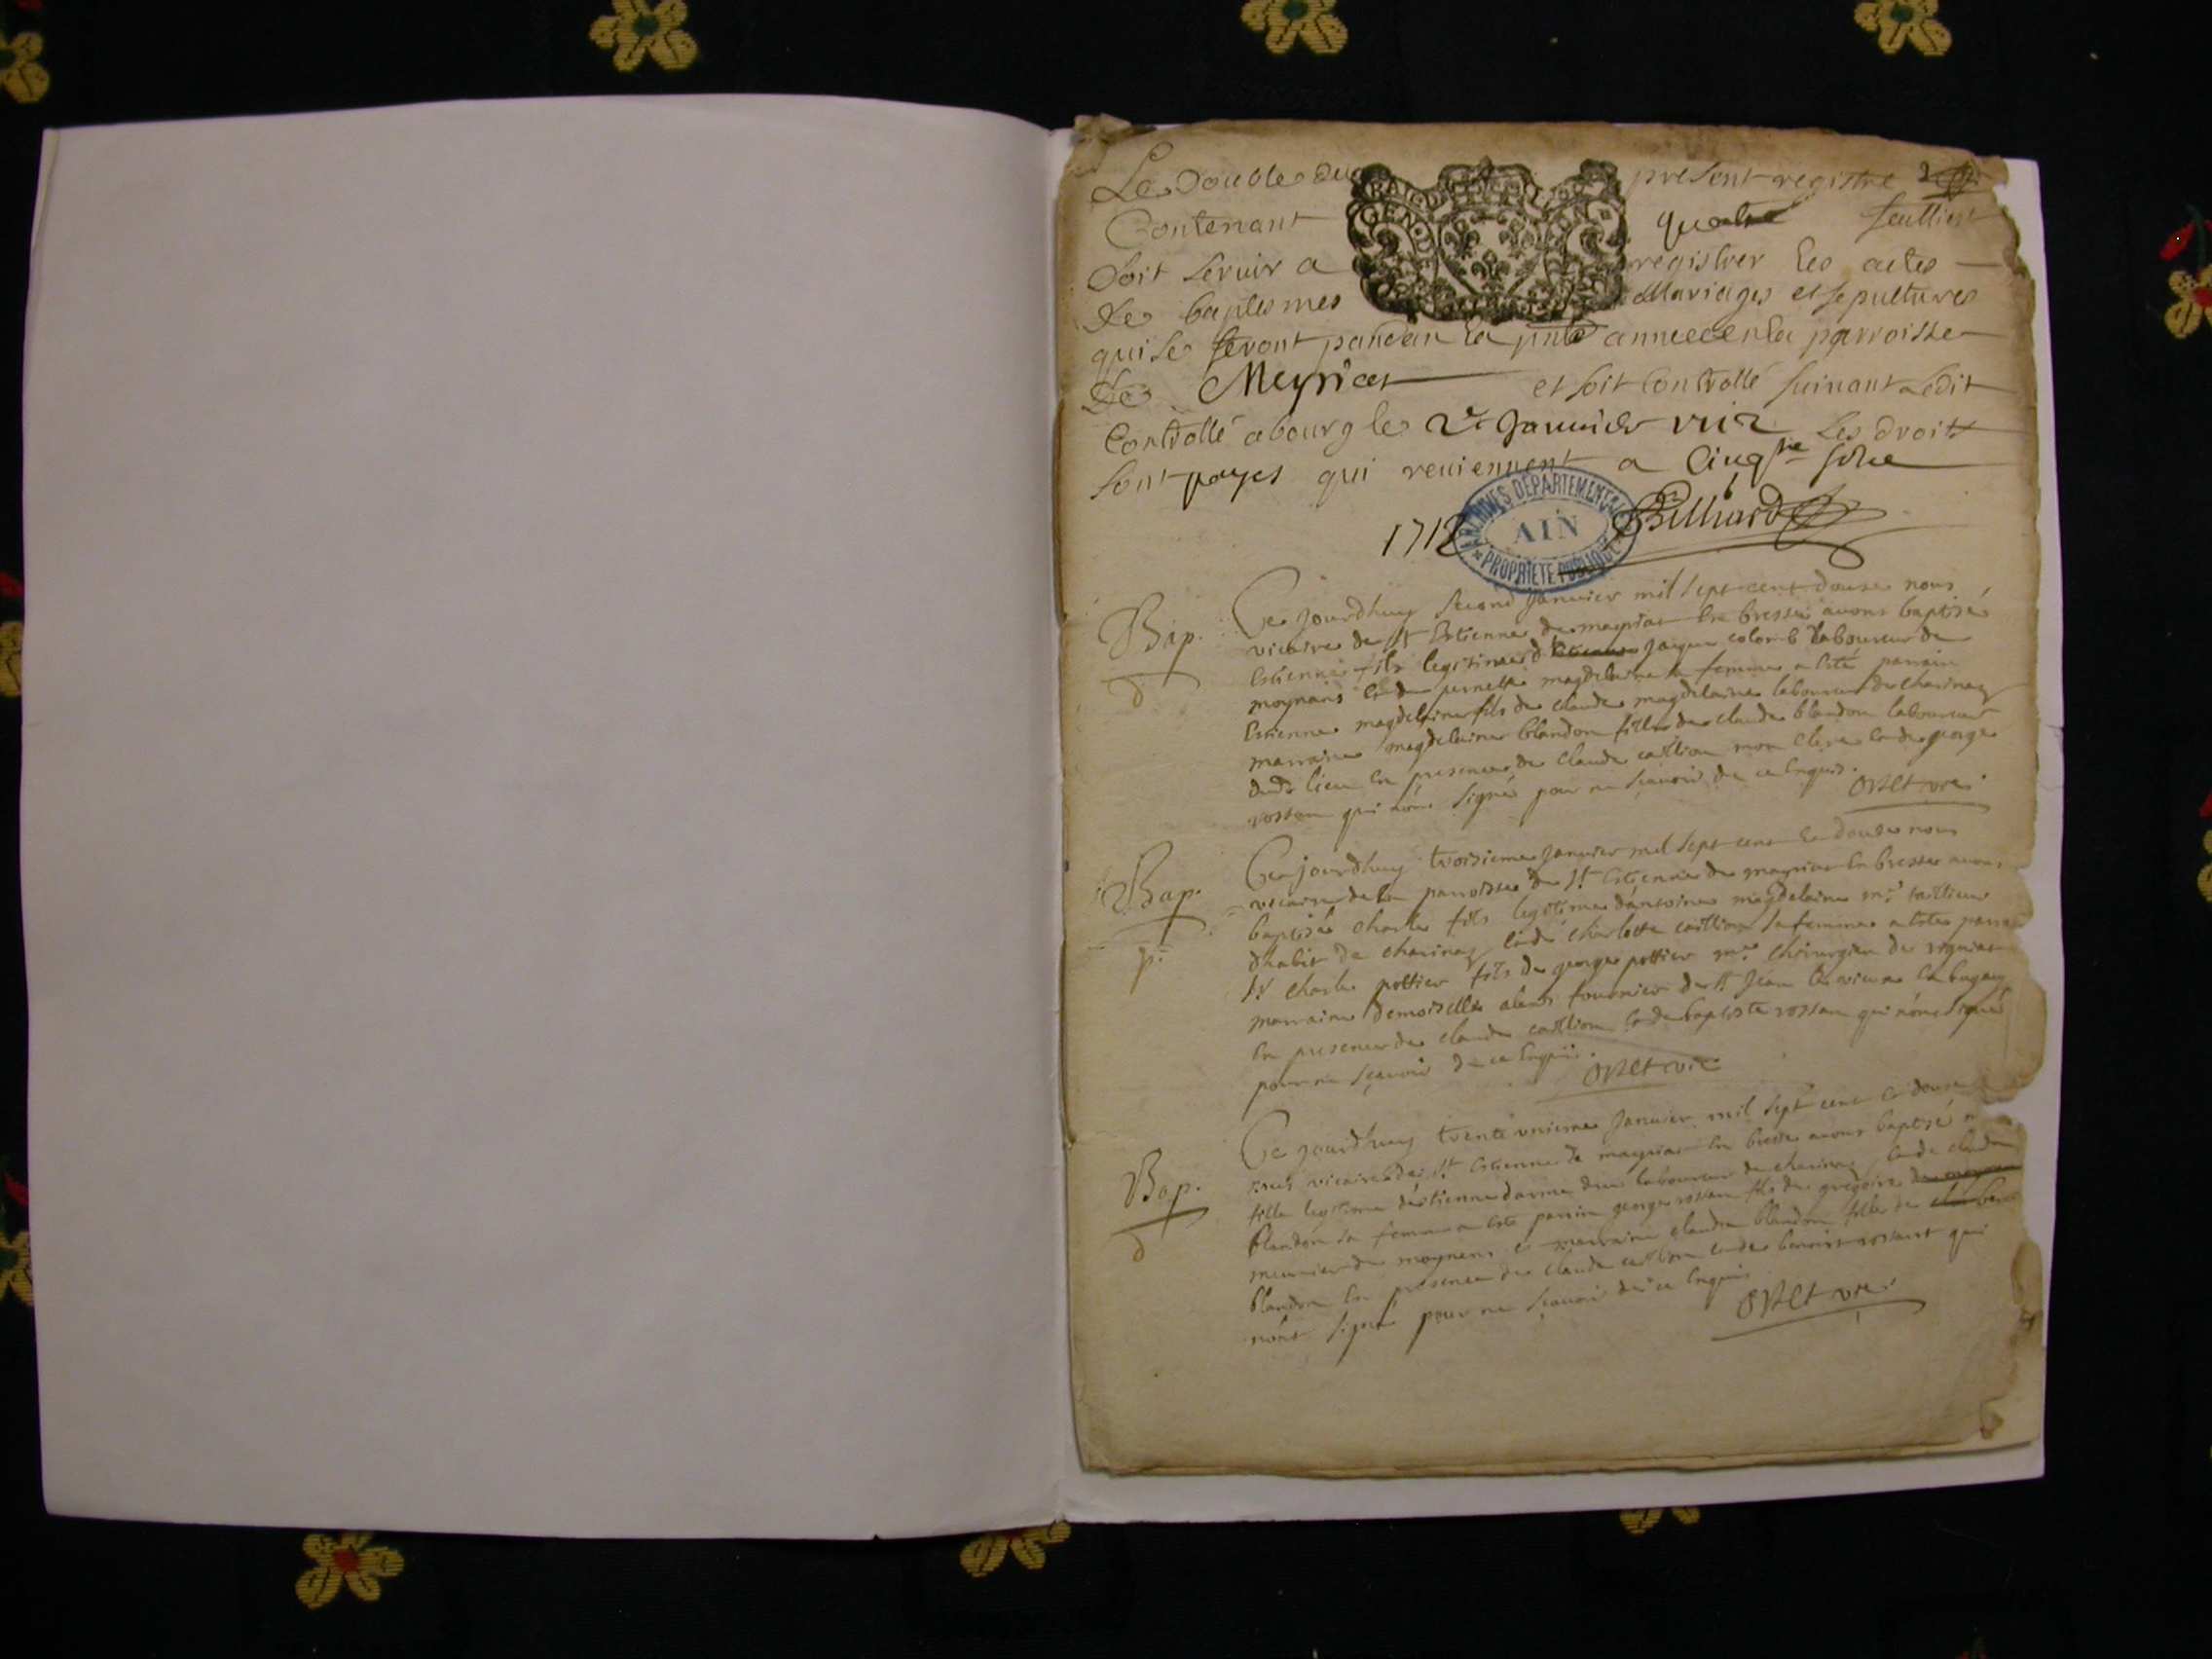 Le Double du present registre 2
Contenant quatre feulliest
Doit servir a registrer les actes
De baptesmes Mariages et sepultures
qui se feront pandan la pnte annee en la parroisse
De Meyriat et soit Controllé suivant Ledit
Controllé a bourg le 2e Janvier 1712 Les droits
sont payes qui reviennent a Cinq solz
1712 Billiard
ARCHIVES DEPARTEMENTALES
AIN
PROPRIETE PUBLIQUE
GEN DE
Bap. Ce jourdhuy second Janvier mil sept cent douse nous
vicaire de St Estienne de mayriat En bresse avons baptisé
Estienne fils legitime d Jaque colomb laboureur de
moynans Et de pernette magdelaine sa femme a Esté parrain
Estienne magdelaine fils de claude magdelaine laboureur de charinaz
marraine magdelaine blandon fille de claude blandon laboureur
dudt lieu En presence de claude caillion mon clerc Et de george
rossan qui nont signés pour ne sçavoir de ce Enquis.
Orset vre
Bap. Ce jourdhuy troisieme Janvier mil sept cent Et douse nous
vicaire de la parroisse de St Estienne de mayriat En bresse avons
baptisé charle fils legitime dantoine magdelaine mre tailleur
dhabit de charinaz Et de charlotte caillion sa femme a Esté parrain
Sr charle pottier fils de george pottier mre chirurgien de
marraine demoiselle fournier de St Jean le vieux En bugey
En presence de claude caillion Et de baptiste rossan qui nont signé
pour ne sçavoir de ce Enquis.
Orset vre
Bap. Ce jourdhuy trente unieme Janvier mil sept cent Et douse
nous vicaire de St Estienne de mayriat En bresse avons baptisé
fille legitime destienne laboureur de charinaz Et de claudine
blandon sa femme a Esté parrain george rossan fils de gregoire
meunier de moynans Et marraine claudine blandon fille de
blandon En presence de claude caillion Et de benoist rossant qui
nont signé pour ne sçavoir de ce Enquis
Orset vre